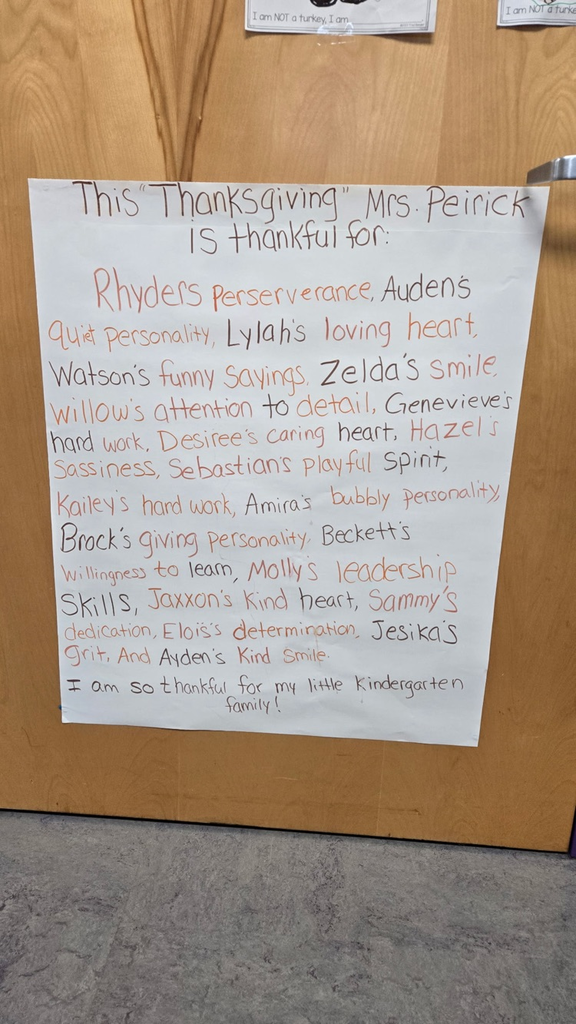 I am NOT a turkey, I am
I am NOT a turke
This "Thanksgiving" Mrs. Peirick
is thankful for:
Rhyders perserverance, Auden's
quiet personality, Lylah's loving heart,
Watson's funny sayings, Zelda's smile,
Willow's attention to detail, Genevieve's
hard work, Desiree's caring heart, Hazel's
Sassiness, Sebastian's playful Spirit,
Kailey's hard work, Amira's bubbly personality,
Brock's giving personality, Beckett's
willingness to learn, Molly's leadership
Skills, Jaxxon's Kind heart, Sammy's
dedication, Elois's determination, Jesika's
grit, And Ayden's Kind Smile.
I am so thankful for my little Kindergarten
family!